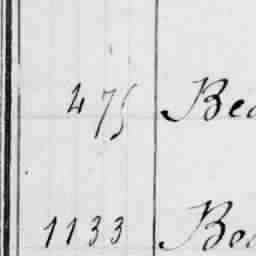 475 Bea
1133 Bea